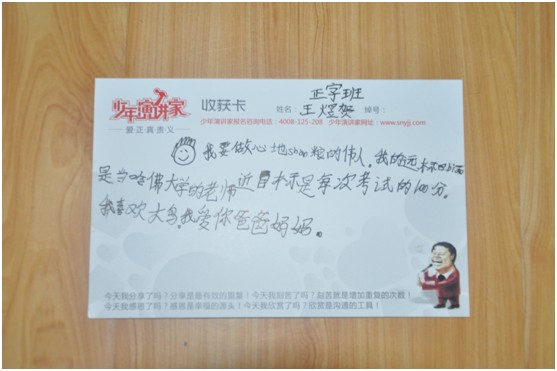 正字班
少年演讲家 收获卡 姓名：王煜贺 梯号：
少年演讲家报名咨询电话：4008-125-208 少年演讲家网址：www.snyjj.com
爱正真贵义
我要做心地shan粮的伟人。我的远
是当哈佛大学的老师近目标是每次考试的100分。
我喜欢大鸟。我爱你爸爸妈妈。
今天我分享了吗？分享是最有效的重复！今天我刻苦了吗？刻苦就是增加重复的次数！
今天我感恩了吗？感恩是幸福的源头！今天我欣赏了吗？欣赏是沟通的工具！